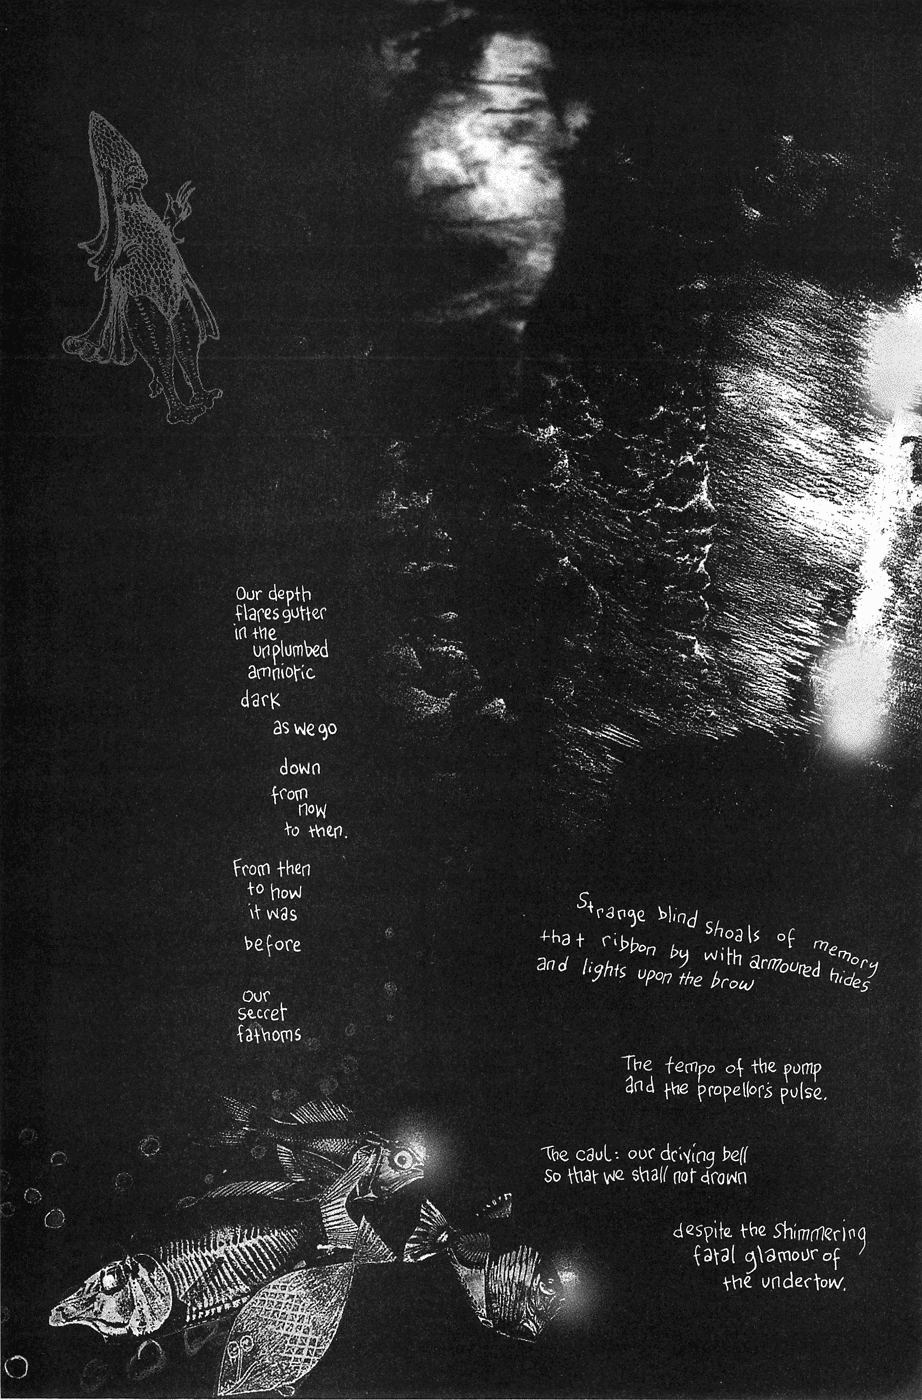 Our depth
flares gutter
in the
unplumbed
amniotic
dark
as we go
down
from
now
to then.
From then
to how
it was
before
Our
secret
fathoms
Strange blind shoals of memory
that ribbon by with armoured hides
and lights upon the brow
The tempo of the pump
and the propellor's pulse.
The caul: our driving bell
so that we shall not drown
despite the shimmering
fatal glamour of
the undertow.